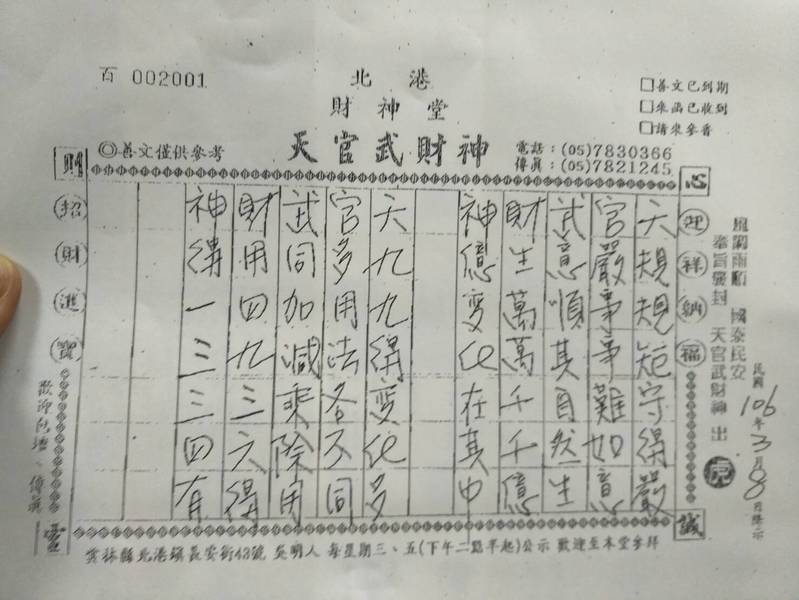 百 002001
北港
財神堂
天官武財神
◎善文僅供參考
□善文已到期
□來函已收到
□請來參香
電話：(05)7830366
傳眞：(05)7821245
心
迎祥納福
誠
風調雨順 國泰民安
奉旨襲封 天官武財神 出
民國106年3月8日降示
天規規矩守得嚴
官嚴事事難如意
武意順其自然生
財生萬萬千千億
神億变化在其中
天九九得变化多
官多用法各不同
武同加減乘除用
財用四九三六得
神得一三三四有
財
招財進寶
靈
雲林縣北港鎮長安街43號 吳明人 每星期三、五(下午二點半起)公示 歡迎至本堂參拜